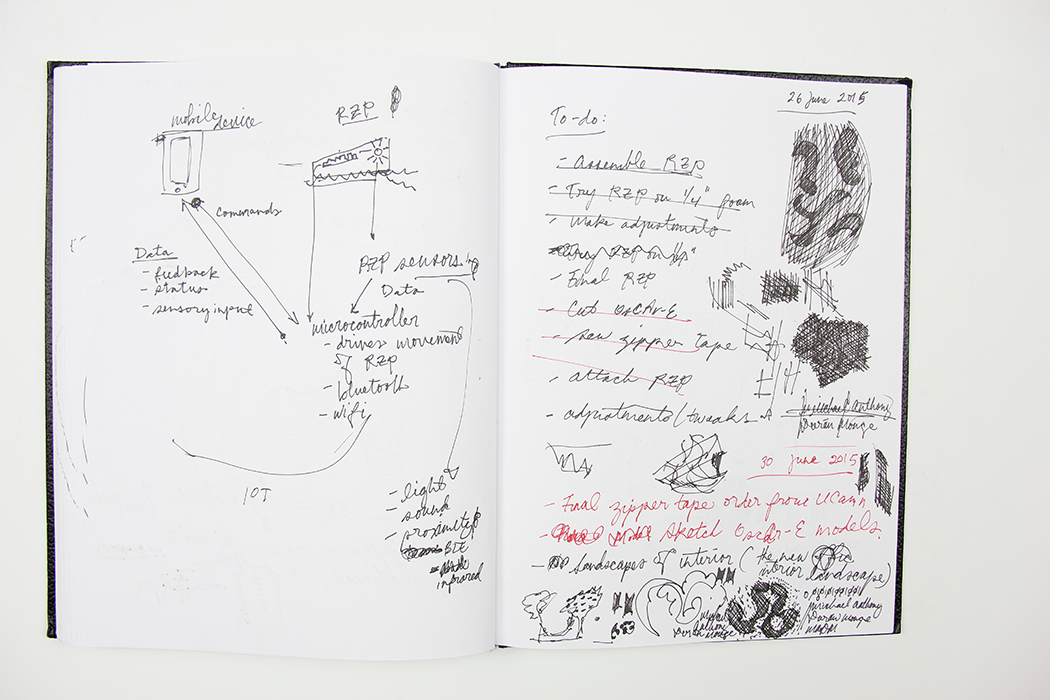 mobile device
RZP
commands
Data
- feedback
- status
- sensory input
RZP sensors
Data
microcontroller
- drives movement
of RZP
- bluetooth
- wifi
IOT
- light
- sound
- proximity
BLE
infrared
26 June 2015
To-do:
- Assemble RZP
- Try RZP on 1/4" foam
- Make adjustments
RZP on 1/4"
- Final RZP
- Cut OSCAr-E
- sew zipper tape
- attach RZP
- adjustments/tweaks
michael anthony
30 June 2015
- Final zipper tape order from UCann
- Sketch OscAr-E models.
- landscapes of interior (the new
interior landscape)
michael anthony